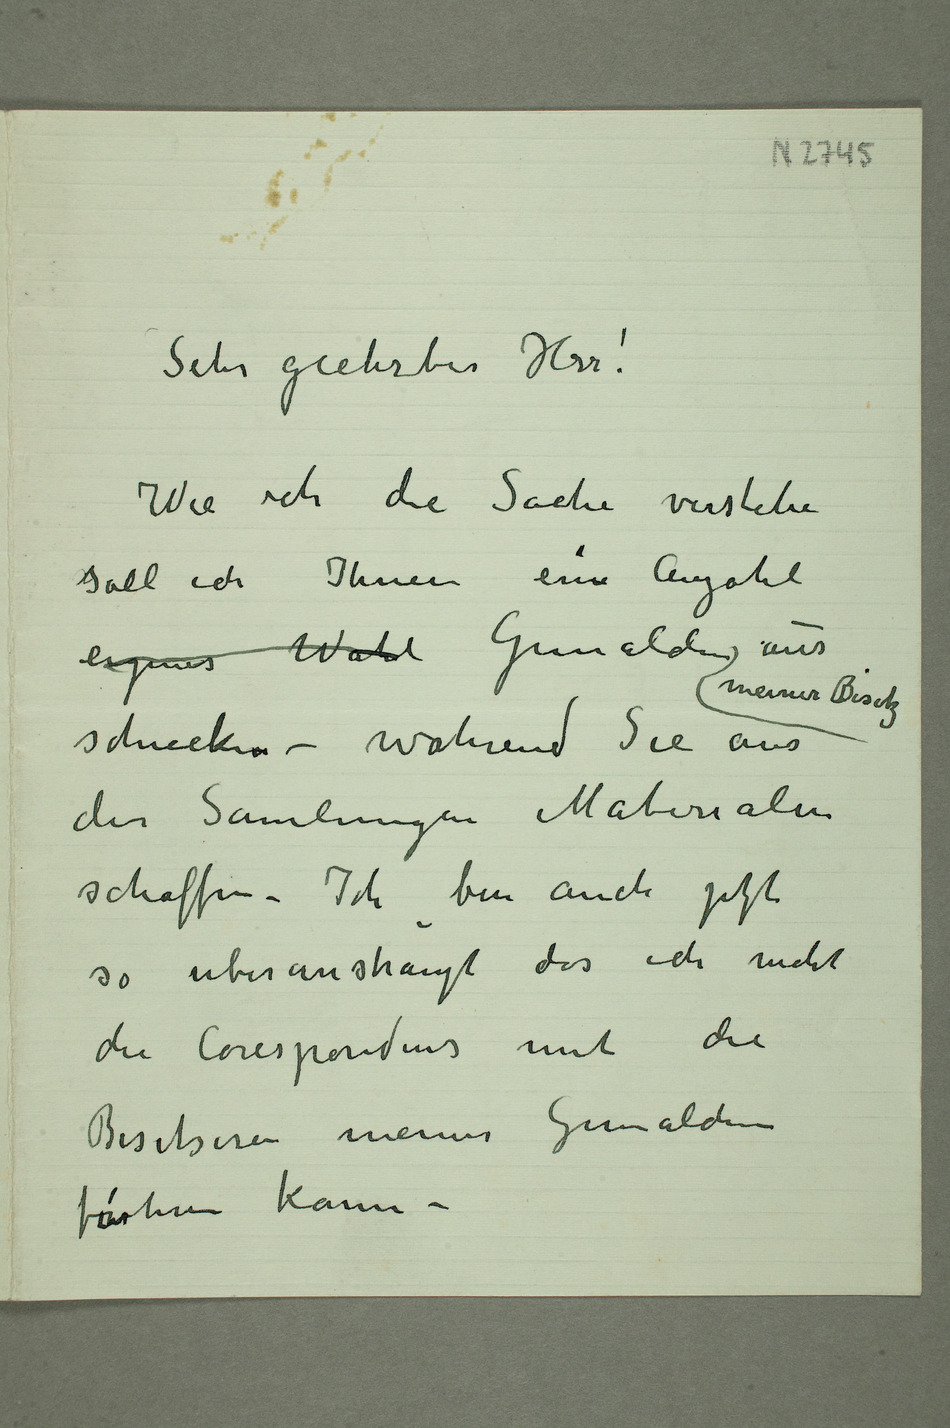 N 2745
Sehr geehrter Herr!
Wie ich die Sache verstehe
soll ich Ihnen eine Anzahl
eigner Wahl Gemälden aus
meiner Besitz
schiecken – während Sie aus
der Samlungen Materialen
schaffen – Ich bin auch jetzt
so überansträngt das ich nicht
die Corespondens mit die
Besitseren meiner Gemälden
führen kann –